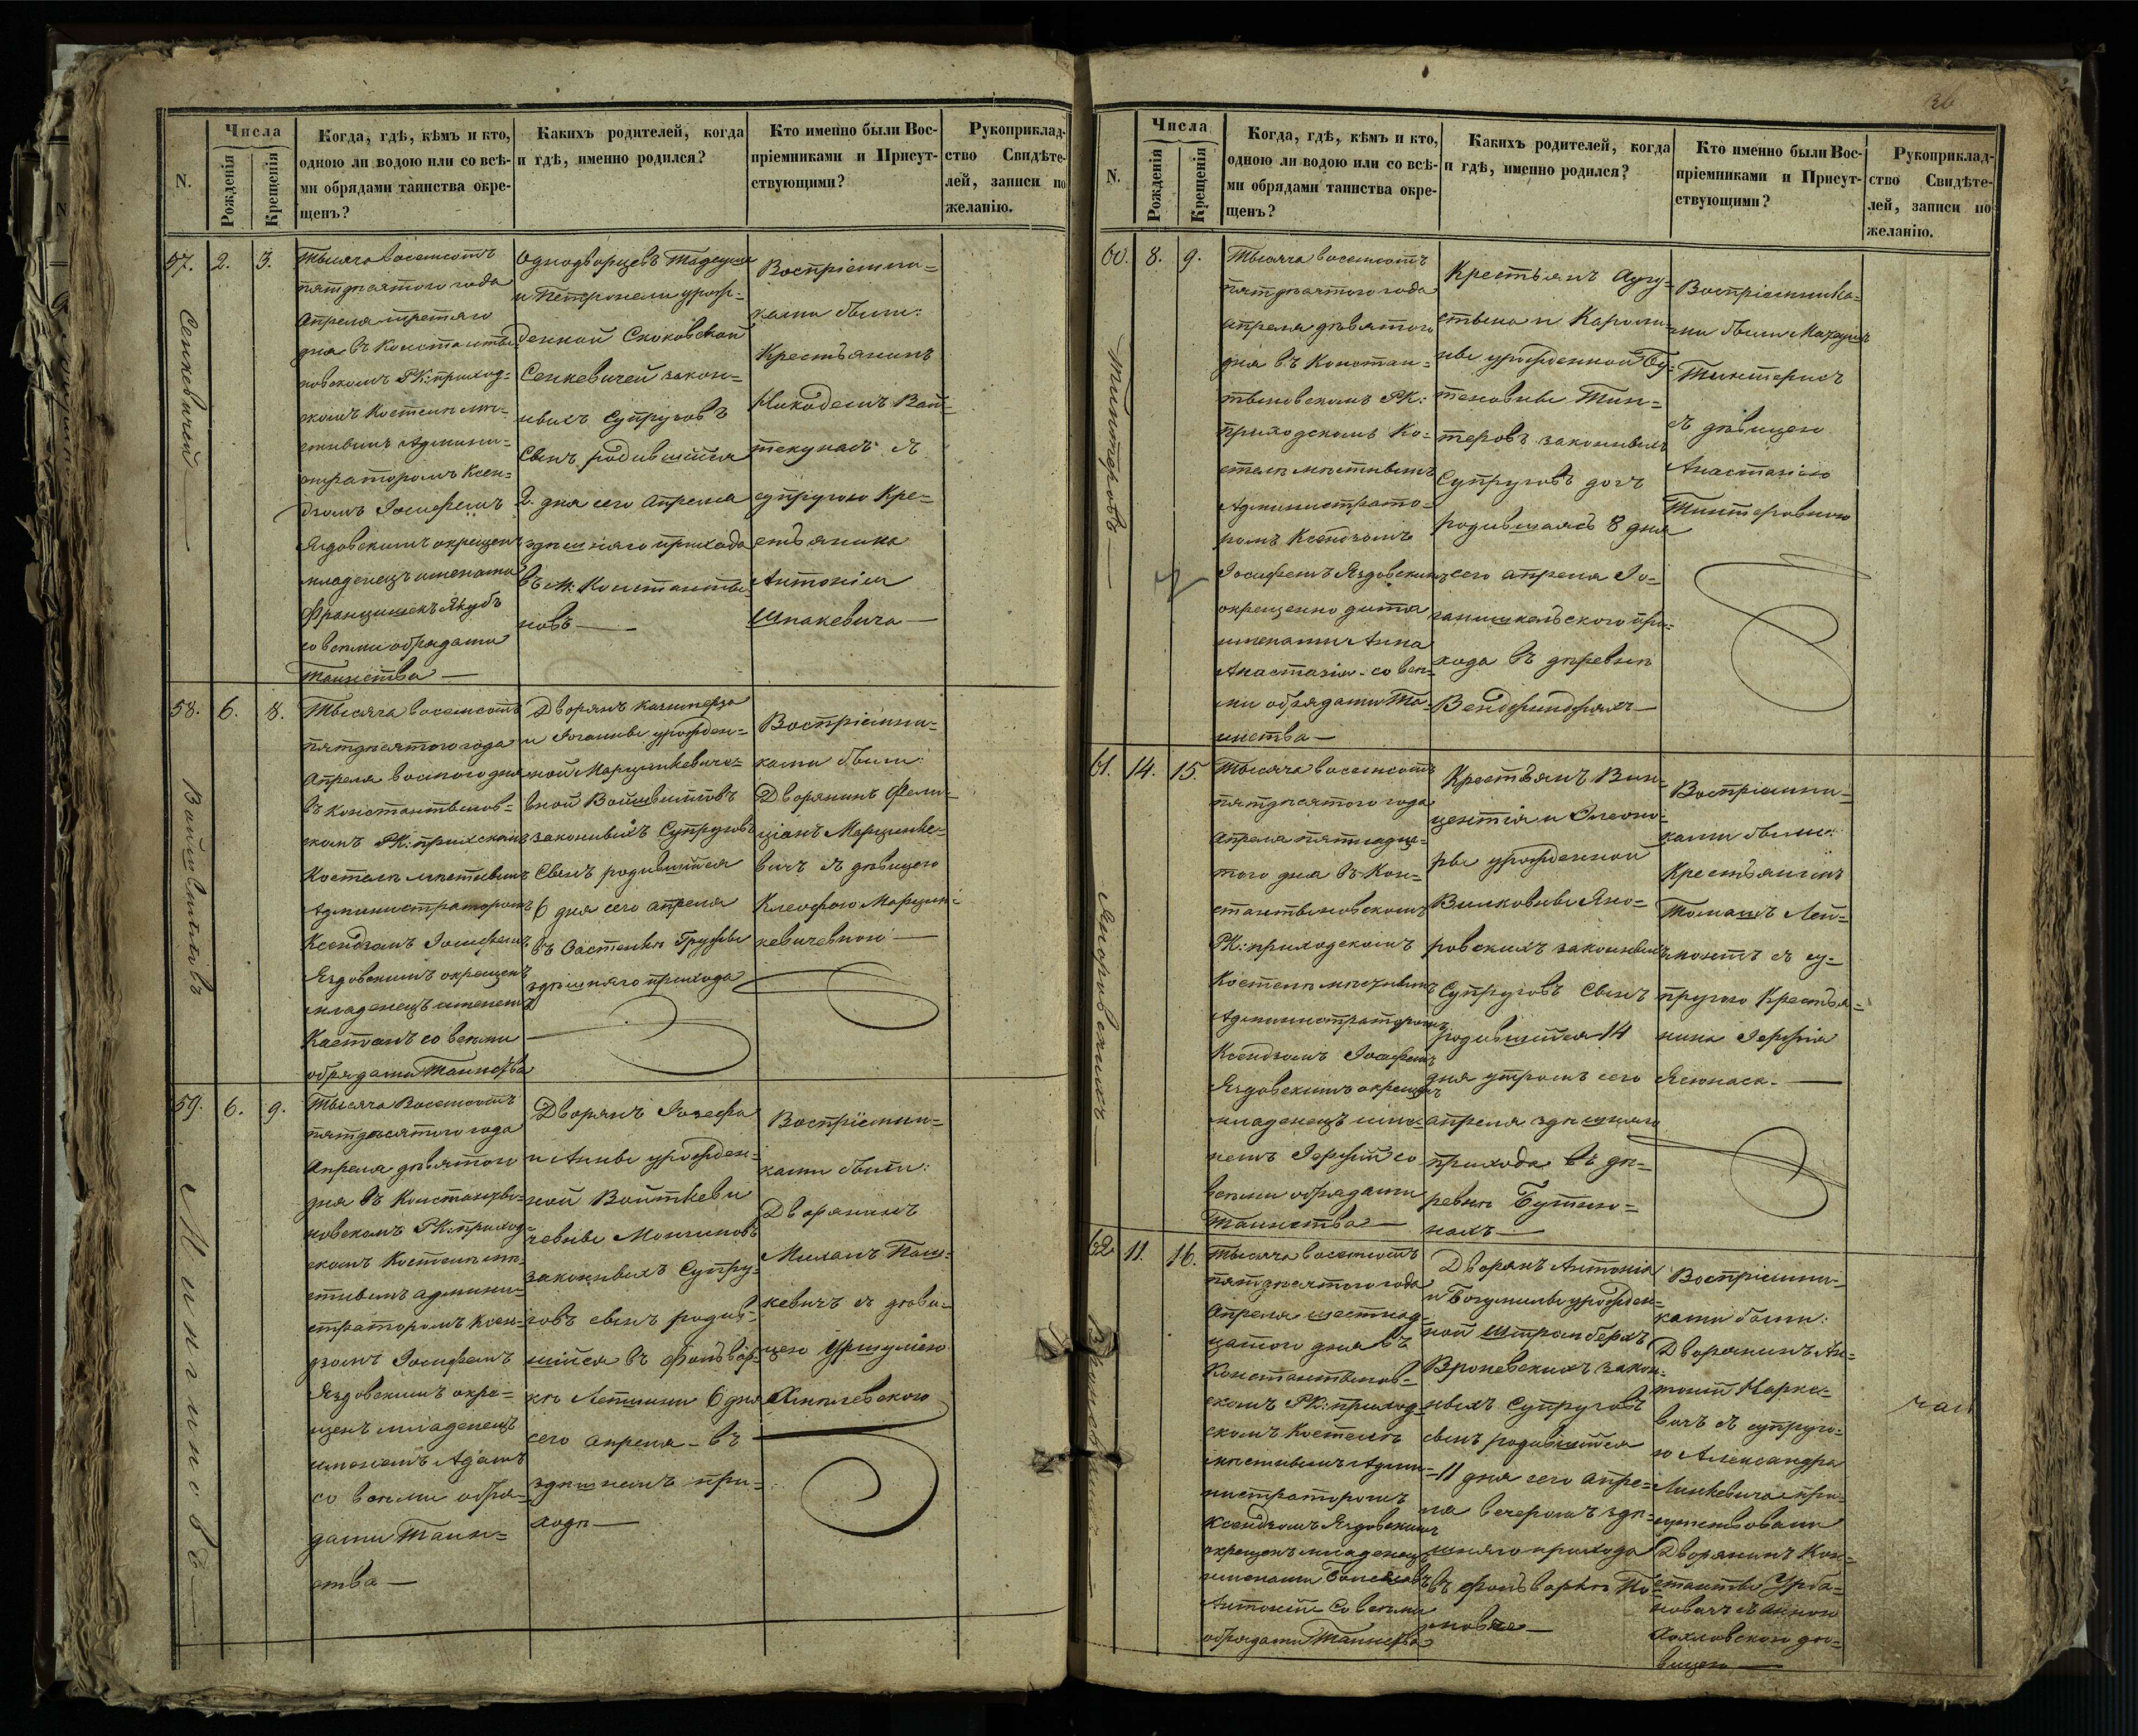 N.
Числа
Рожденія
Крещенія
Когда, гдѣ, кѣмъ и кто,
одною ли водою или со всѣ-
ми обрядами таинства окре-
щенъ?
Какихъ родителей, когда
и гдѣ, именно родился?
Кто именно были Вос-
пріемниками и Присут-
ствующими?
Рукоприклад-
ство Свидѣте-
лей, записи по
желанію.
57.
2.
3.
Сенкевичей
Тысяча восемсотъ
пятдѣсятого года
Апреля третяго
дня въ Константы
новскомъ РК: приход-
скомъ Костелѣ мѣ-
стнымъ Админи-
страторомъ Ксен-
дзомъ Іосифомъ
Яздовскимъ окрещенъ
младенецъ именами
Францишекъ Якубъ
со всѣми обрядами
Таинства
Однодворцевъ Тадеуша
и Петронели урож-
денной Сноковской
Сенкевичей закон-
ныхъ Супруговъ
Сынъ, родившійся
2. дня сего Апреля
здѣшняго прихода
въ м: Константы
новѣ
Воспріемни-
ками были:
Крестьянинъ
Никодемъ Вай-
текунасъ съ
супругою Кре-
стьянина
Антонія
Шпакевича
58.
6.
8.
Войшвилловъ
Тысяча восемсотъ
пятдѣсятого года
Апреля восмого дня
въ Константынов-
скомъ РК: прихскомъ
Костелѣ мѣстнымъ
Администраторомъ
Ксендзомъ Іосифомъ
Яздовскимъ окрещенъ
младенецъ именемъ
Каетанъ со всѣми
обрядами Таинства
Дворянъ Казимержа
и Іоганны урожден-
ной Марцинкевичо-
вной Войшвилловъ
законныхъ Супруговъ
Сынъ родившійся
6 дня сего апреля
въ Застенкѣ Гружы
здѣшняго прихода
Воспріемни-
ками были:
Дворянинъ Фели-
ціанъ Марцинке-
вичъ съ дѣвицею
Клеофою Марцин-
кевичевною
59.
6.
9.
Мингиновъ
Тысяча Восемсотъ
пятдѣсятого года
Апреля дѣвятого
дня въ Константы-
новскомъ РК: приход-
скомъ Костелѣ мѣ-
стнымъ админи-
страторомъ Ксен-
дзомъ Іосифомъ
Яздовскимъ окре-
щенъ младенецъ
именемъ Адамъ
со всѣми обря-
дами Таин-
ства
Дворянъ Іозефа
и Анны урожден-
ной Войткеви
чевны Монгиновъ
законныхъ Супру-
говъ сынъ родив-
шійся въ фольвар-
кѣ Летшини 6 дня
сего апреля въ
здѣшнемъ при-
ходѣ
Воспріемни-
ками были:
Дворянинъ
Миланъ Паш-
кевичъ съ дѣви-
цею Уршулею
Хмѣлевскою
36
N.
Числа
Рожденія
Крещенія
Когда, гдѣ, кѣмъ и кто,
одною ли водою или со всѣ-
ми обрядами таинства окре-
щенъ?
Какихъ родителей, когда
и гдѣ, именно родился?
Кто именно были Вос-
пріемниками и Присут-
ствующими?
Рукоприклад-
ство Свидѣте-
лей, записи по
желанію.
60.
8.
9.
Тинтеровъ
Тысяча восемсотъ
пятдѣсятого года
апреля дѣвятого
дня въ Констан-
тыновскомъ РК:
приходскомъ Ко-
стелѣ мѣстнымъ
Администрато-
ромъ Ксендзомъ
Іосифомъ Яздовскимъ
окрещенно дитя
именами Анна
Анастазія со всѣ-
ми обрядами Та-
инства
Крестьянъ Авгу-
стына и Кароли-
ны урожденной Бу-
теновны Тин-
теровъ законныхъ
Супруговъ дочь
родившаясь 8 дня
сего апреля Іо-
ганишкельского при-
хода въ деревнѣ
Воспріемника-
ми были
Тинтерисъ
съ дѣвицею
Анастазіею
Тинтеровною
61.
14.
15.
Яноровскихъ
Тысяча восемсотъ
пятдѣсятого года
Апреля пятнадца-
того дня въ Кон-
стантыновскомъ
РК: приходскомъ
Костелѣ мѣстнымъ
Администраторомъ
Ксендзомъ Іосифомъ
Яздовскимъ окрещенъ
младенецъ име-
немъ Іержій со
всѣми обрядами
Таинства
Крестьянъ Вин-
центія и Элеоно-
ры урожденной
Вилковны Яно-
ровскихъ законныхъ
Супруговъ Сынъ
родившійся 14
дня утромъ сего
апреля здѣшняго
прихода въ де-
ревнѣ Бутню-
нахъ
Воспріемни-
ками были:
Крестьянинъ
Томашъ Лей-
монтъ съ су-
пругою Крестья-
нина Іержія
Ясюнаса.
62
11.
16.
Вроневскихъ
Тысяча восемсотъ
пятдѣсятого года
Апреля шестнад-
цатого дня въ
Константынов-
скомъ РК: приход-
скомъ Костелѣ
мѣстнымъ Адми-
нистраторомъ
Ксендзомъ Яздовскимъ
окрещенъ младенецъ
именами Болеславъ
Антоній со всѣми
обрядами Таинства
Дворянъ Антонія
и Богумилы урожден-
ной Штромбергъ
Вроневскихъ закон-
ныхъ Супруговъ
сынъ родившійся
11 дня сего апре-
ля вечеромъ здѣ-
шняго прихода
въ фольваркѣ По
Воспріемни-
ками были:
Дворянинъ Ан-
тоній Нарке-
вичъ съ супруго-
ю Александра
Линкевича при-
сутствовали
Дворянинъ Кон-
стантый Урба-
новичъ съ Анною
Козловскою дѣ-
вицею